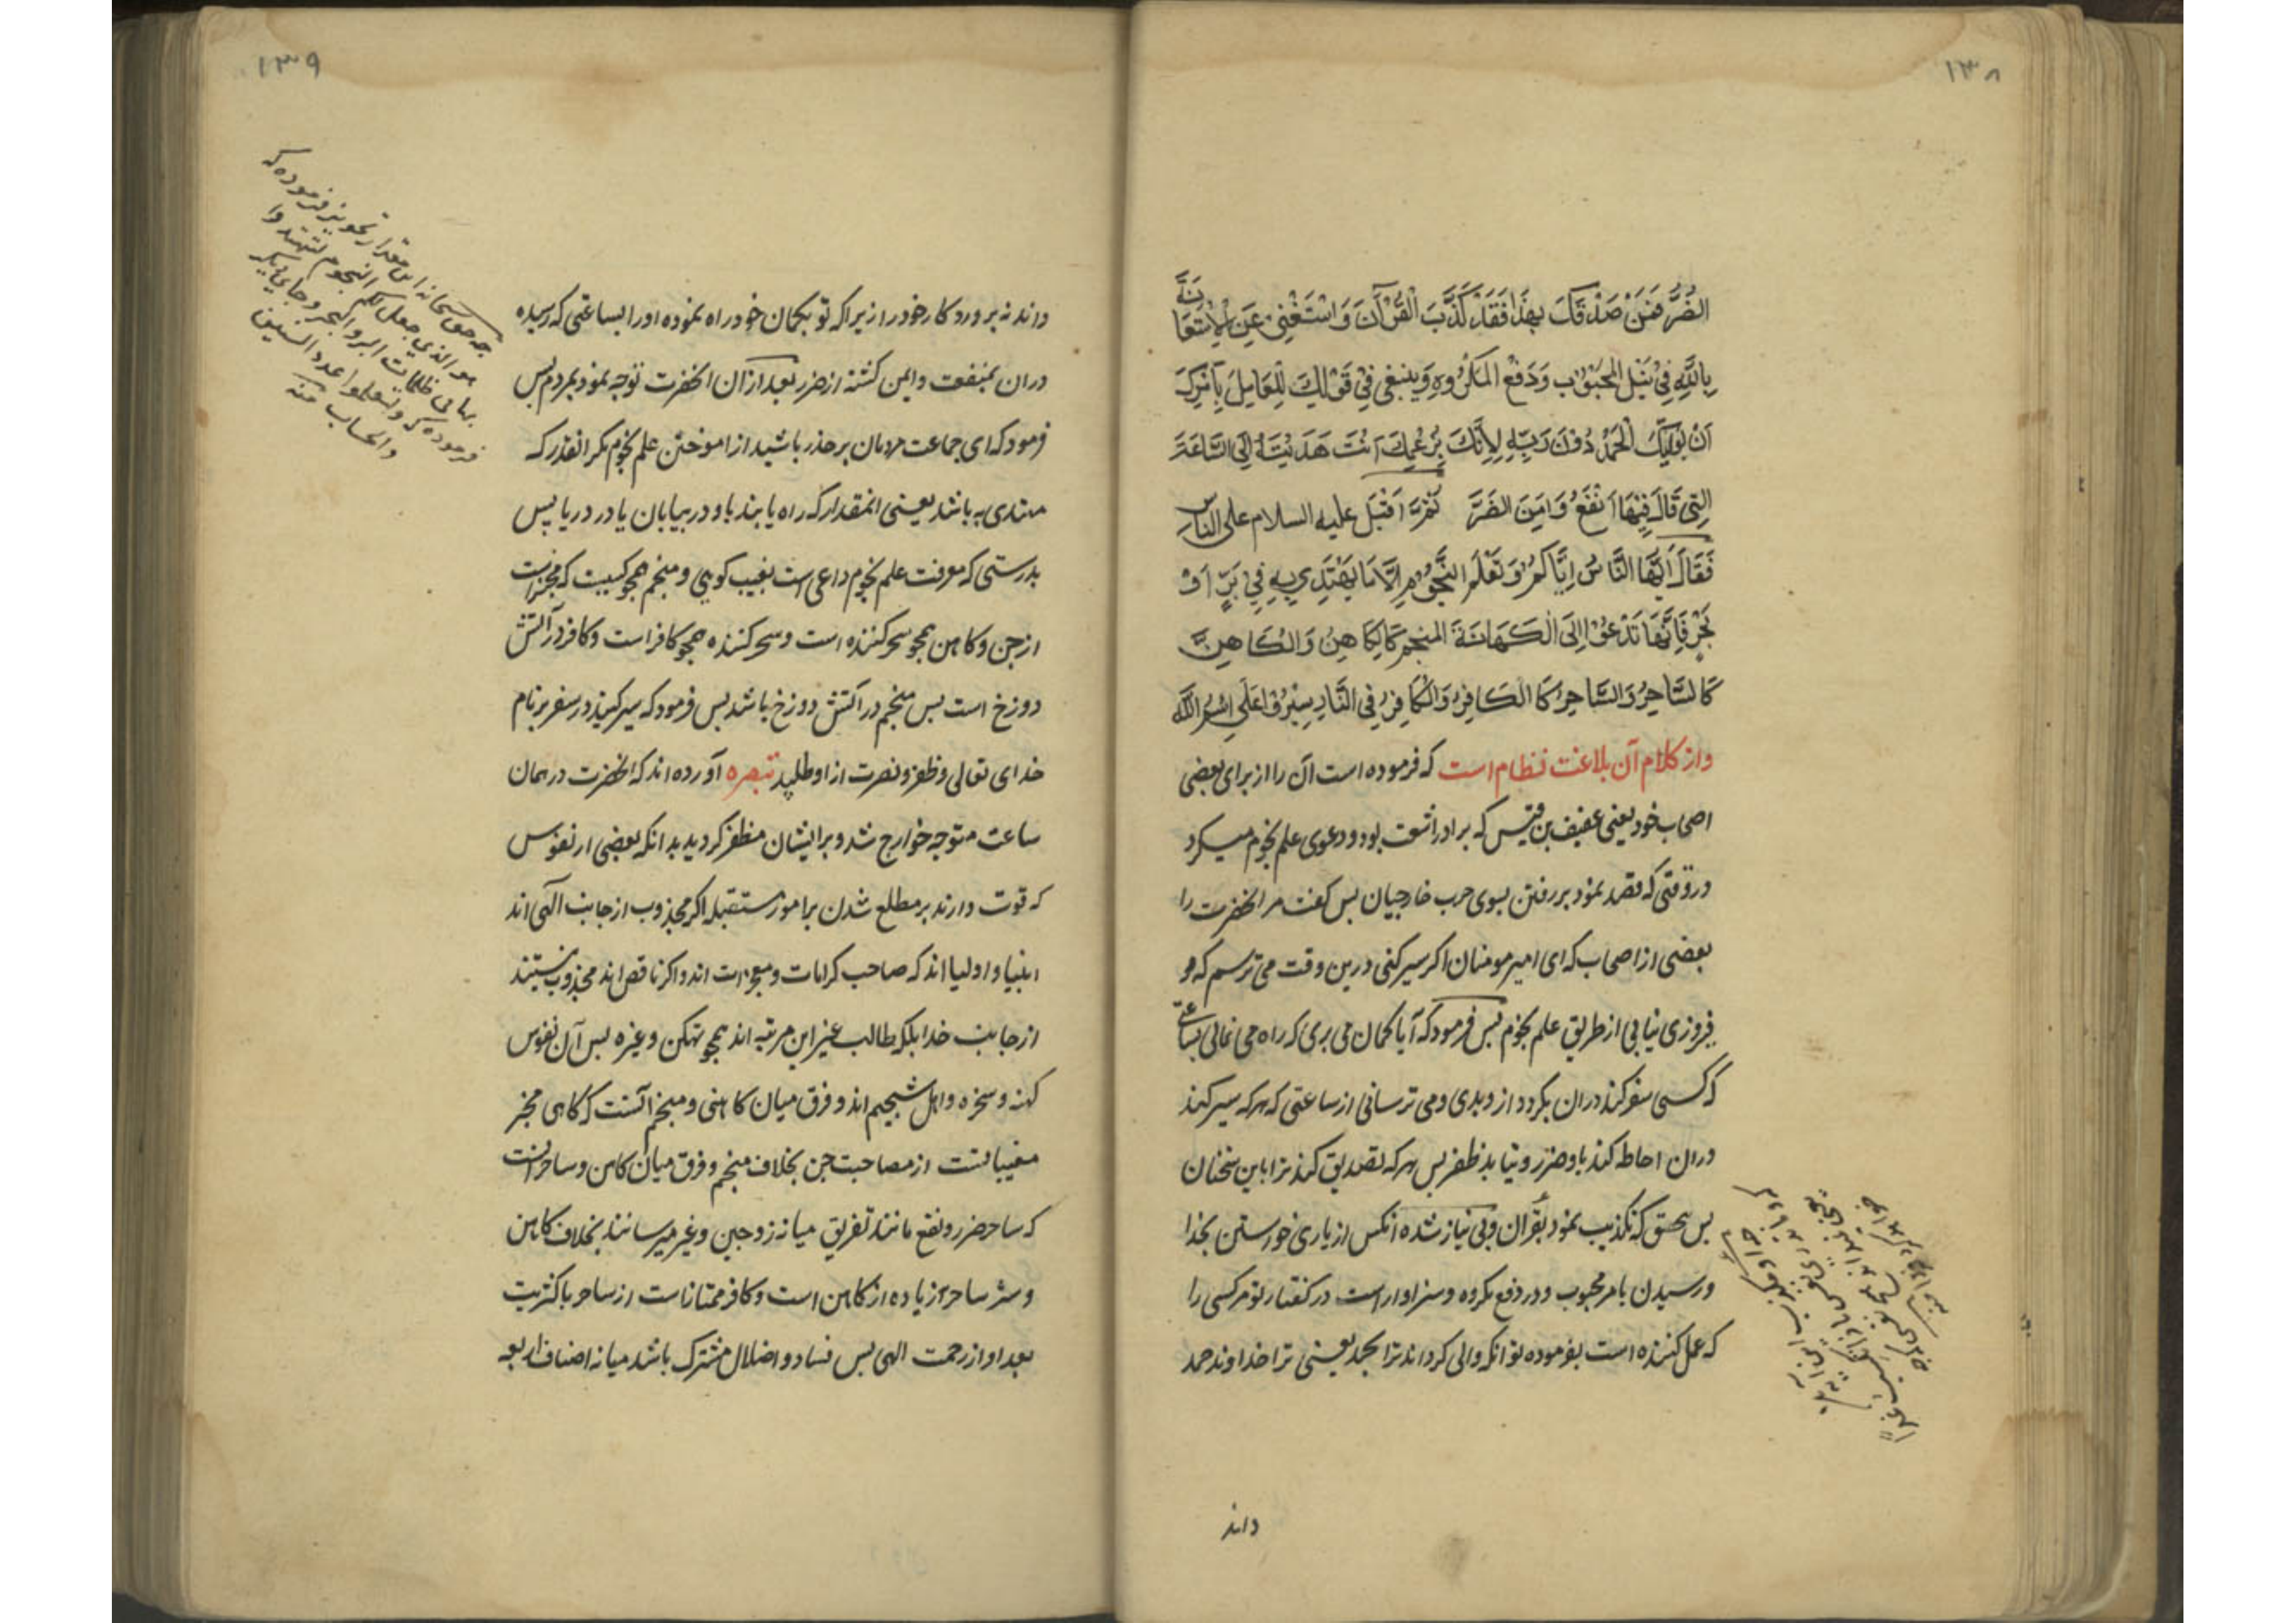 ١٣٨
الضُّرَّ فَمَنْ صَدَّقَكَ بِهٰذَا فَقَدْ كَذَّبَ الْقُرْآنَ وَاسْتَغْنٰى عَنِ الْاِسْتِعَانَةِ
بِاللّٰهِ فِي نَيْلِ الْمَحْبُوبِ وَدَفْعِ الْمَكْرُوهِ وَيَنْبَغِي فِي قَوْلِكَ لِلْعَامِلِ بِاَمْرِكَ
اَنْ يُولِيَكَ الْحَمْدَ دُونَ رَبِّهِ لِاَنَّكَ بِزَعْمِكَ اَنْتَ هَدَيْتَهُ اِلَى السَّاعَةِ
الَّتِي نَالَ فِيهَا النَّفْعَ وَاَمِنَ الضُّرَّ ثُمَّ اَقْبَلَ عليه السلام على الناس
فَقَالَ اَيُّهَا النَّاسُ اِيَّاكُمْ وَتَعَلُّمَ النُّجُومِ اِلَّا مَا يُهْتَدٰى بِهِ فِي بَرٍّ اَوْ
بَحْرٍ فَاِنَّهَا تَدْعُوا اِلَى الْكَهَانَةِ المنجم كَالْكَاهِنِ وَالْكَاهِنُ
كَالسَّاحِرِ وَالسَّاحِرُ كَالْكَافِرِ وَالْكَافِرُ فِي النَّارِ سِيْرُوْا عَلَى اسْمِ اللّٰهِ
واز کلام آن بلاغت نظام است که فرموده است آن را از برای بعضی
اصحاب خود یعنی عفیف بن قیس که برادر اشعث بود و دعوی علم نجوم میکرد
در وقتی که قصد نمود بر رفتن بسوی حرب خارجیان پس گفت مر انحضرت را
بعضی از اصحاب که ای امیر مومنان اگر سیر کنی درین وقت می ترسم که
فیروزی نیابی از طریق علم نجوم پس فرمود که آیا گمان می بری که راه می نمائی بساعتی
که کسی سفر کند دران بگردد ازو بدی و می ترسانی از ساعتی که هر که سیر کند
دران احاطه کند باو ضرر و نیابد ظفر پس هر که تصدیق کند ترا باین سخنان
پس بتحقیق که تکذیب نمود بقرآن و بی نیاز شده آنکس از یاری خواستن بخدا
در رسیدن بامر محبوب و در دفع مکروه و سزاوار است در گفتار تو مر کسی را
که عمل کننده است بفرموده تو انکه والی گرداند ترا بحمد یعنی ترا خداوند حمد
داند
١٣٩
داند نه پروردگار خود را زیرا که تو بگمان خود راه نموده او را بساعتی که رسیده
دران بمنفعت و ایمن گشته از ضرر بعد ازان انحضرت توجه نمود بمردم پس
فرمود که ای جماعت مردمان بر حذر باشید از اموختن علم نجوم مگر انقدر که
مهتدی به باشد یعنی انمقدار که راه یابند باو در بیابان یا در دریا پس
بدرستی که معرفت علم نجوم داعی است بغیب گویی و منجم همچو کسیست که مخبر است
از جن و کاهن همچو سحر کننده است و سحر کننده همچو کافر است و کافر در آتش
دوزخ است پس منجم در آتش دوزخ باشد پس فرمود که سیر کنید در سفر بر نام
خدای تعالی و ظفر و نصرت از او طلبید تبصره آورده اند که انحضرت در همان
ساعت متوجه خوارج شد و بر ایشان مظفر گردید بدانکه بعضی از نفوس
که قوت دارند بر مطلع شدن بر امور مستقبله اگر مجذوب از جانب الهی اند
انبیا و اولیا اند که صاحب کرامات و معجزات اند و اگر ناقص اند مجذوب نیستند
از جانب خدا بلکه طالب غیر این مرتبه اند همچو تکهن و غیره پس آن نفوس
کهنه و سحره و اهل تنجیم اند و فرق میان کاهنی و منجم آنست که کاهن مخبر
مغیباتست از مصاحبت جن بخلاف منجم و فرق میان کاهن و ساحر آنست
که ساحر ضرر و نفع مانند تفریق میانه زوجین و غیر میرساند بخلاف کاهن
و شر ساحر زیاده از کاهن است و کافر ممتاز است از ساحر باکثریت
بعد او از رحمت الهی پس فساد و اضلال مشترک باشد میانه اصناف اربعه
چه حق سبحانه این مقدار تجویز فرموده که
هو الذی جعل لکم النجوم لتهتدوا
بها فی ظلمات البر والبحر و جای دیگر
فرموده که ولتعلموا عدد السنین
والحساب منه